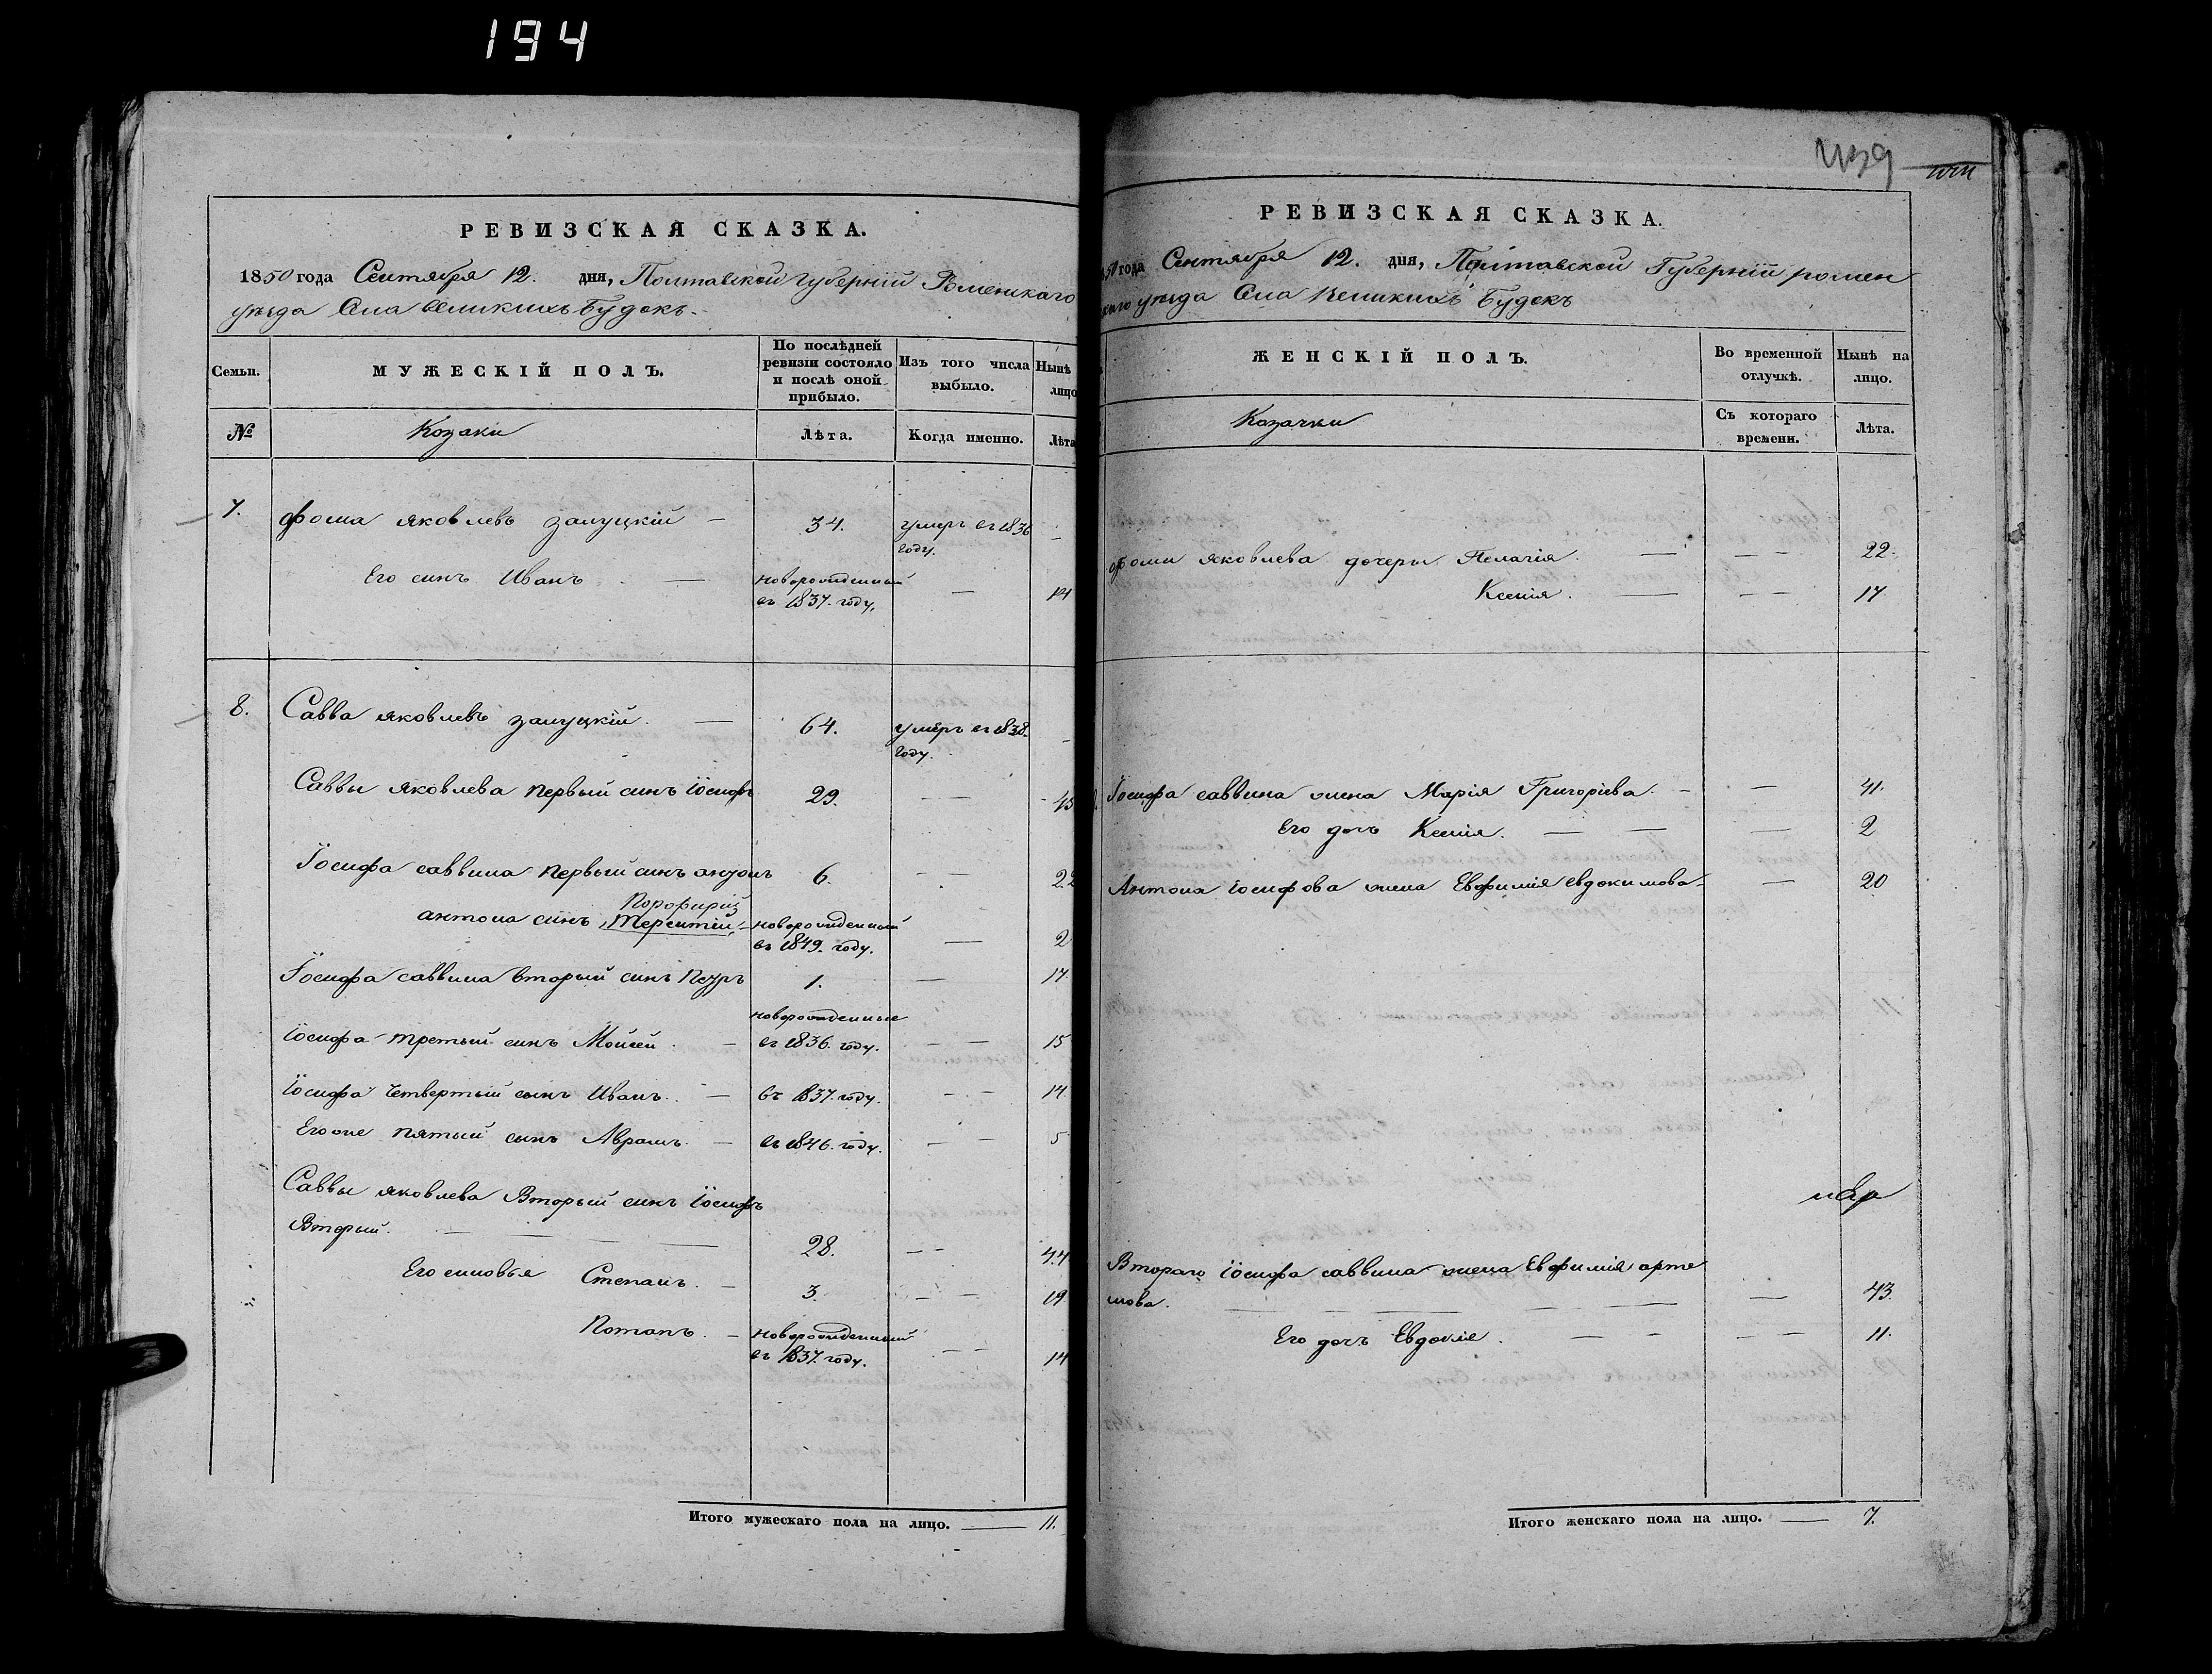 194
РЕВИЗСКАЯ СКАЗКА.
1850 года Сентября 12. дня, Полтавской губернїй Роменскаго
уѣзда Села великихъ Будокъ.
Семьи.
МУЖЕСКІЙ ПОЛЪ.
По послѣдней ревизіи состояло и послѣ оной прибыло.
Изъ того числа выбыло.
Нынѣ лицо
№
Козаки
Лѣта.
Когда именно.
Лѣта
7. фома яковлевъ залуцкій — 34. умеръ въ 1836 году. —
Его синъ Иванъ — новорожденный въ 1837. году. — 14
8. Савва яковлевъ залуцкій. — 64. умеръ въ 1838. году. —
Саввы яковлева первый синъ іосифъ 29. — 45
Іосифа саввина первый синъ антонъ 6. — 22
Порофирій
антона синъ Терентій — новорожденный въ 1849. году. — 2
Іосифа саввина вторый синъ Петръ 1. — 17.
новорожденные
іосифа третый синъ Мойсей. — въ 1836. году. — 15
іосифа четвертый синъ Иванъ. — въ 1837. году. — 14.
Его же пятый сынъ Аврамъ. — въ 1846. году. — 5
Саввы яковлева Вторый синъ іосифъ
Вторый. — 28. — 44
Его синовья Степанъ. — 3. — 19
Потапъ. — новорожденный въ 1837. году. — 14
Итого мужескаго пола на лицо. — 11.
439
РЕВИЗСКАЯ СКАЗКА.
50 года Сентября 12. дня, Полтавской Губернїй ромен
скаго уѣзда Села Великихъ Будокъ
ЖЕНСКІЙ ПОЛЪ.
Во временной отлучкѣ.
Нынѣ на лицо.
Козачки
Съ котораго времени.
Лѣта.
фоми яковлева дочери Пелагія. — — — 22.
Ксенія. — — — 17
Іосифа саввина жена Марія Григоріева. — — 41.
Его дочь Ксенія. — — — 2
Антона іосифова жена Евфимія евдокимова — — 20
Втораго іосифа саввина жена Евфимія арте
мова. — — — 43.
Его дочъ Евдокіе. — — — 11.
Итого женскаго пола на лицо. — 7.